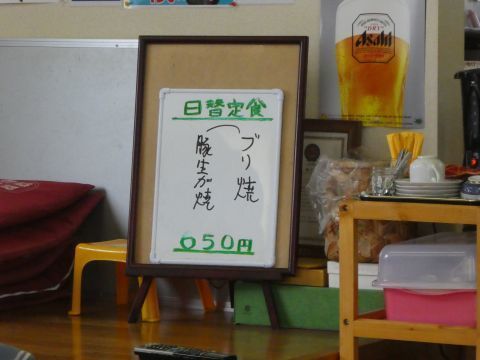 日替定食
ブリ焼
豚生が焼
050円
Asahi